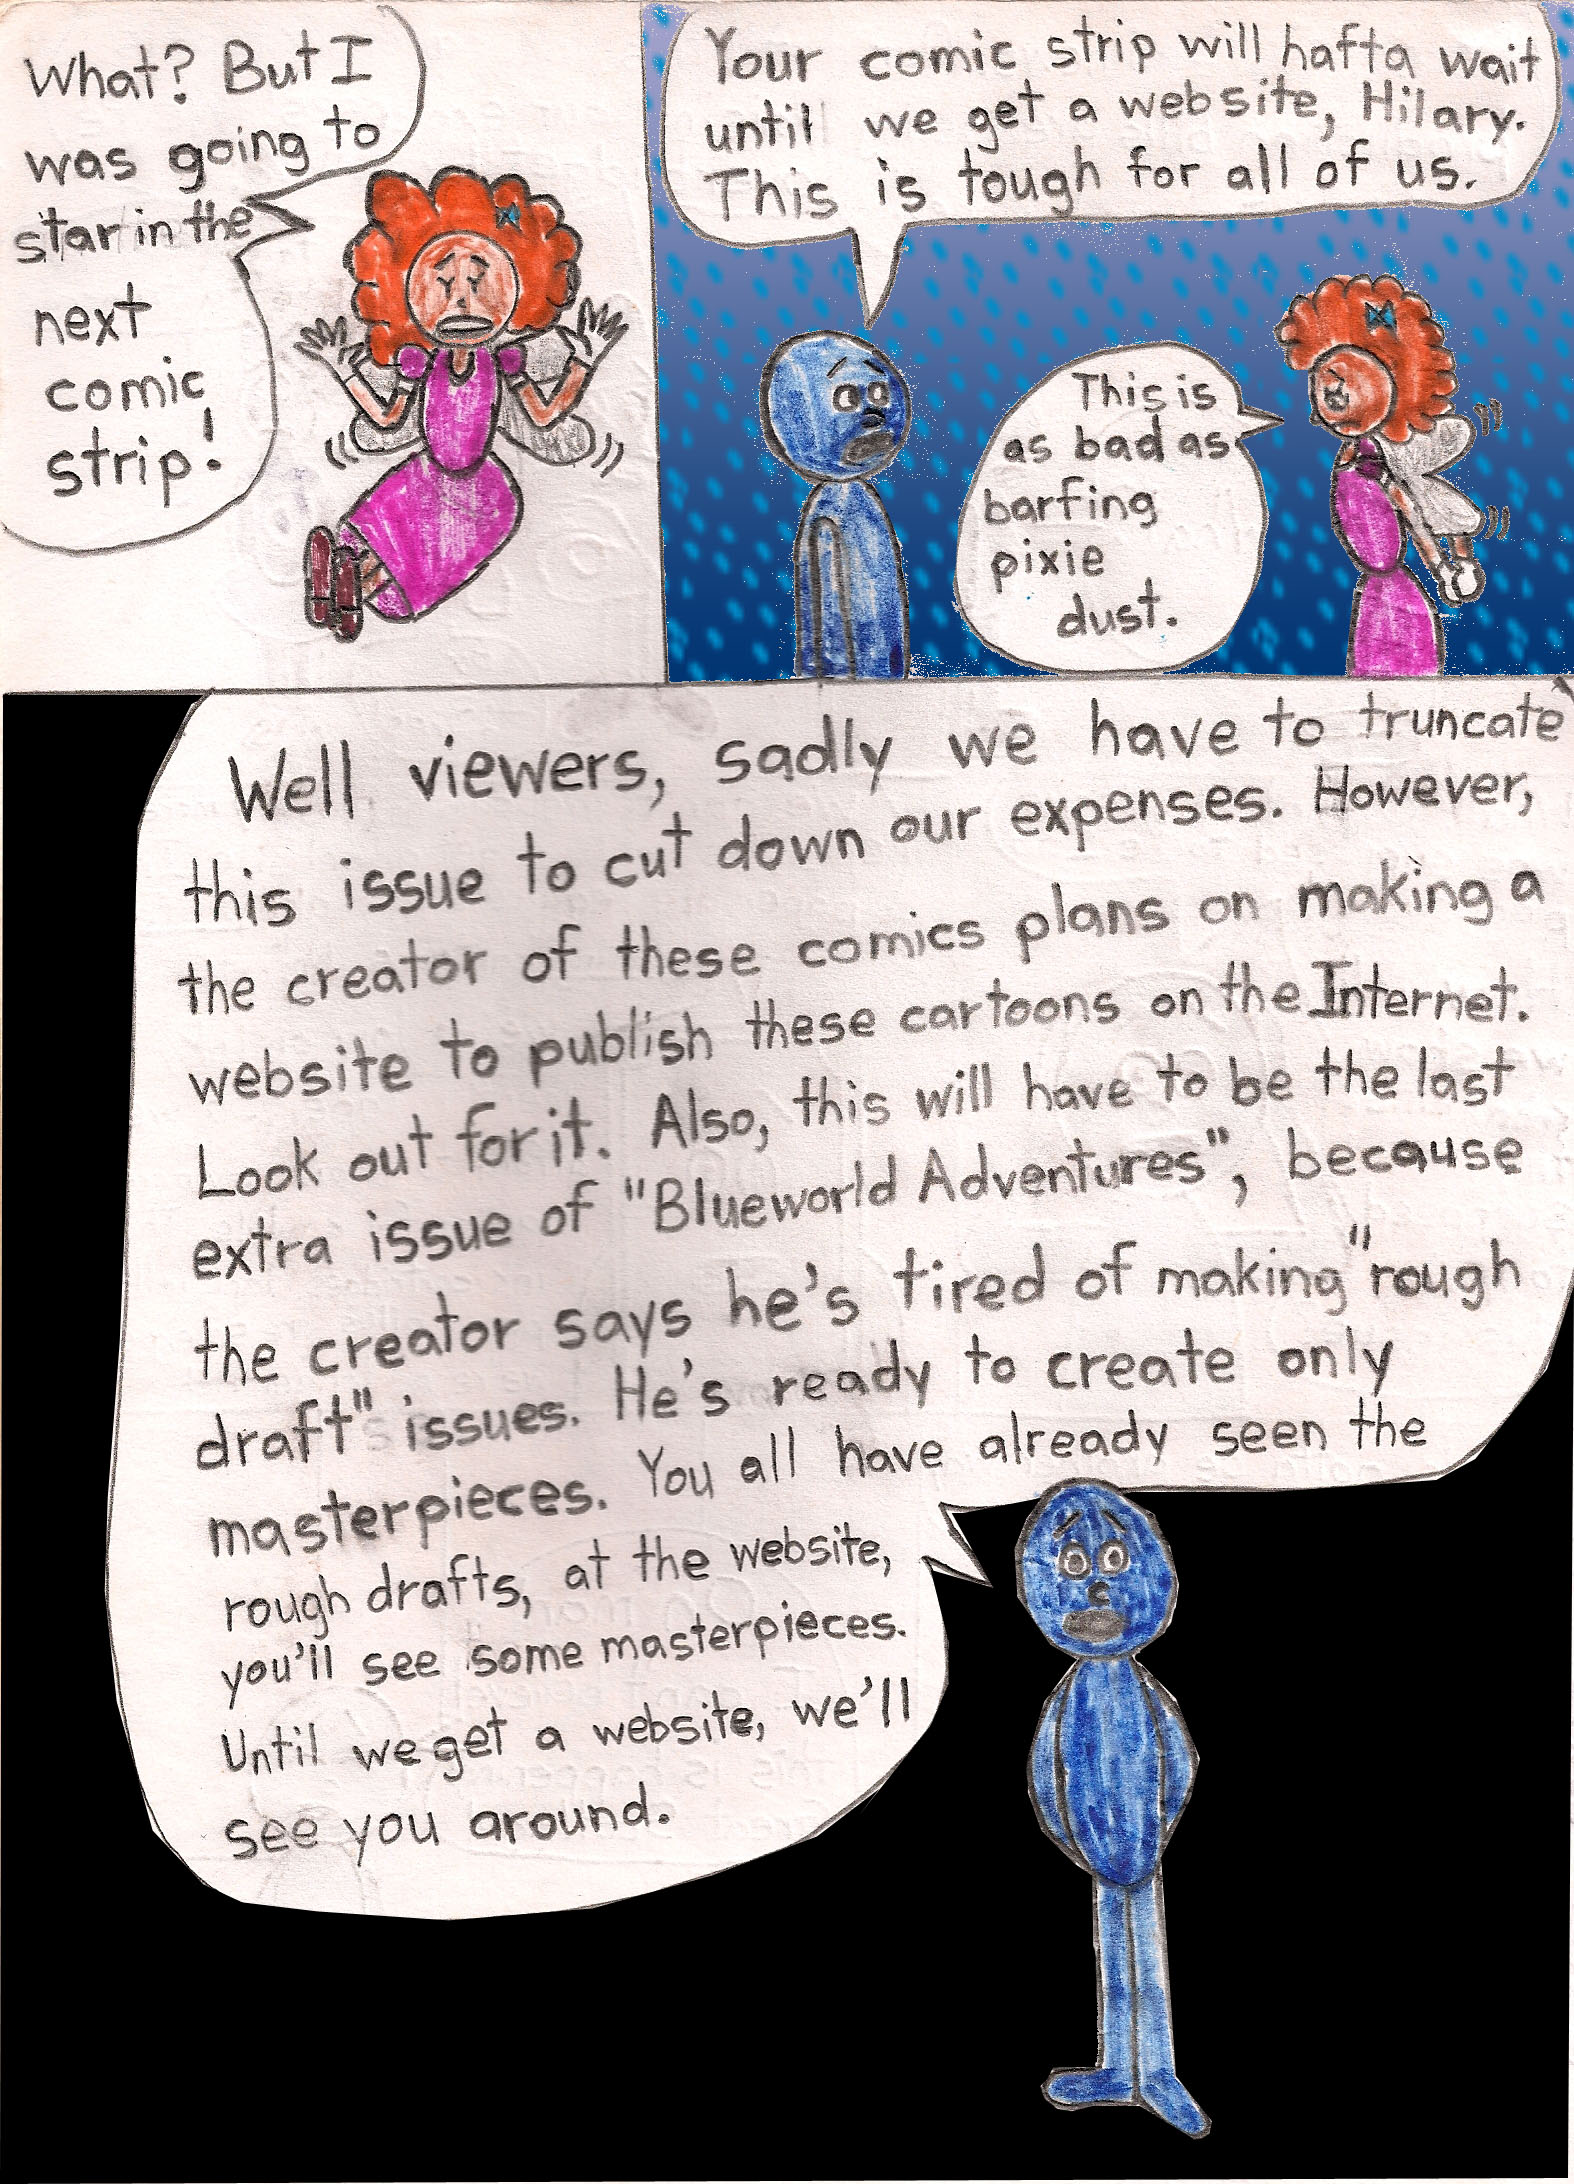 What? But I
was going to
star in the
next
comic
strip!
Your comic strip will hafta wait
until we get a website, Hilary.
This is tough for all of us.
This is
as bad as
barfing
pixie
dust.
Well viewers, sadly we have to truncate
this issue to cut down our expenses. However,
the creator of these comics plans on making a
website to publish these cartoons on the Internet.
Look out for it. Also, this will have to be the last
extra issue of "Blueworld Adventures", because
the creator says he's tired of making "rough
draft" issues. He's ready to create only
masterpieces. You all have already seen the
rough drafts, at the website,
you'll see some masterpieces.
Until we get a website, we'll
see you around.